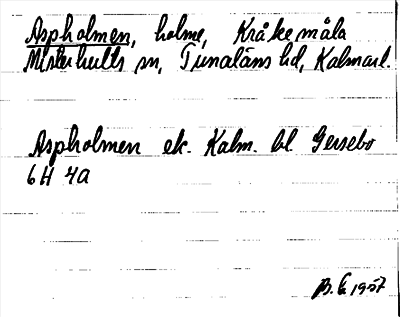 Aspholmen, holme, Kråkemåla
Misterhults sn, Tunaläns hd, Kalmar l.
Aspholmen ek. Kalm. bl. Gersebo
6H 4a
B. E 1957